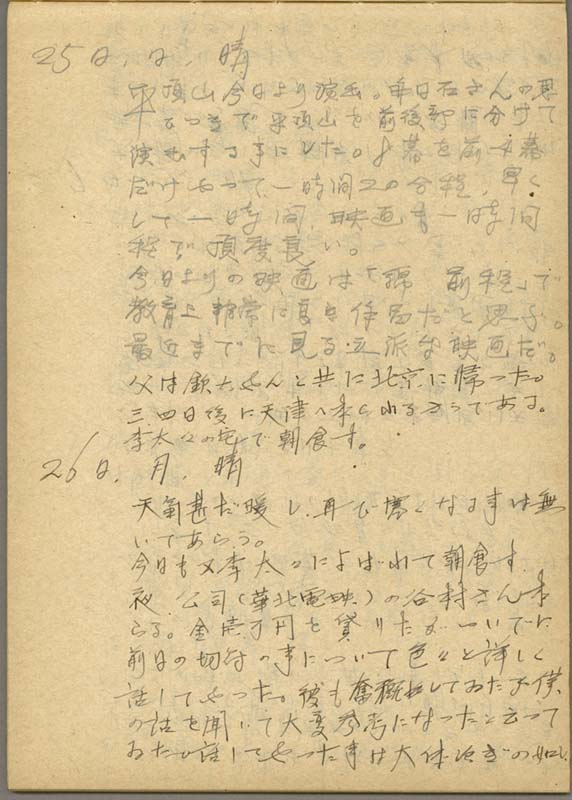 25日、日、晴
平頂山今日より演出。毎日石さんの見て
ゐる で平頂山を前後部に分けて
演出する事にした。8幕を前4幕
だけやって、一時間20分程、早く
して一時間、映画も一時間
程で頂度良い。
今日よりの映画は「錦 前程」で
教育上非常に良き作品だと思ふ。
最近までに見る立派な映画だ。
父は欽 さんと共に北京に帰った。
三四日後に天津へ来られるさうである。
李太々の宅で朝食す。
26日、月、晴
天気甚だ暖し、再び寒くなる事は無
いであらう。
今日も又李太々によばれて朝食す
夜 公司(華北電映)の谷村さん来
らる。金壱万円を貸りたが ついでに
前日の切符の事について色々と詳しく
話してやった。彼も奮慨してゐたが僕
の話を聞いて大変参考になったと云って
ゐた 話してやった事は大体次ぎの如し